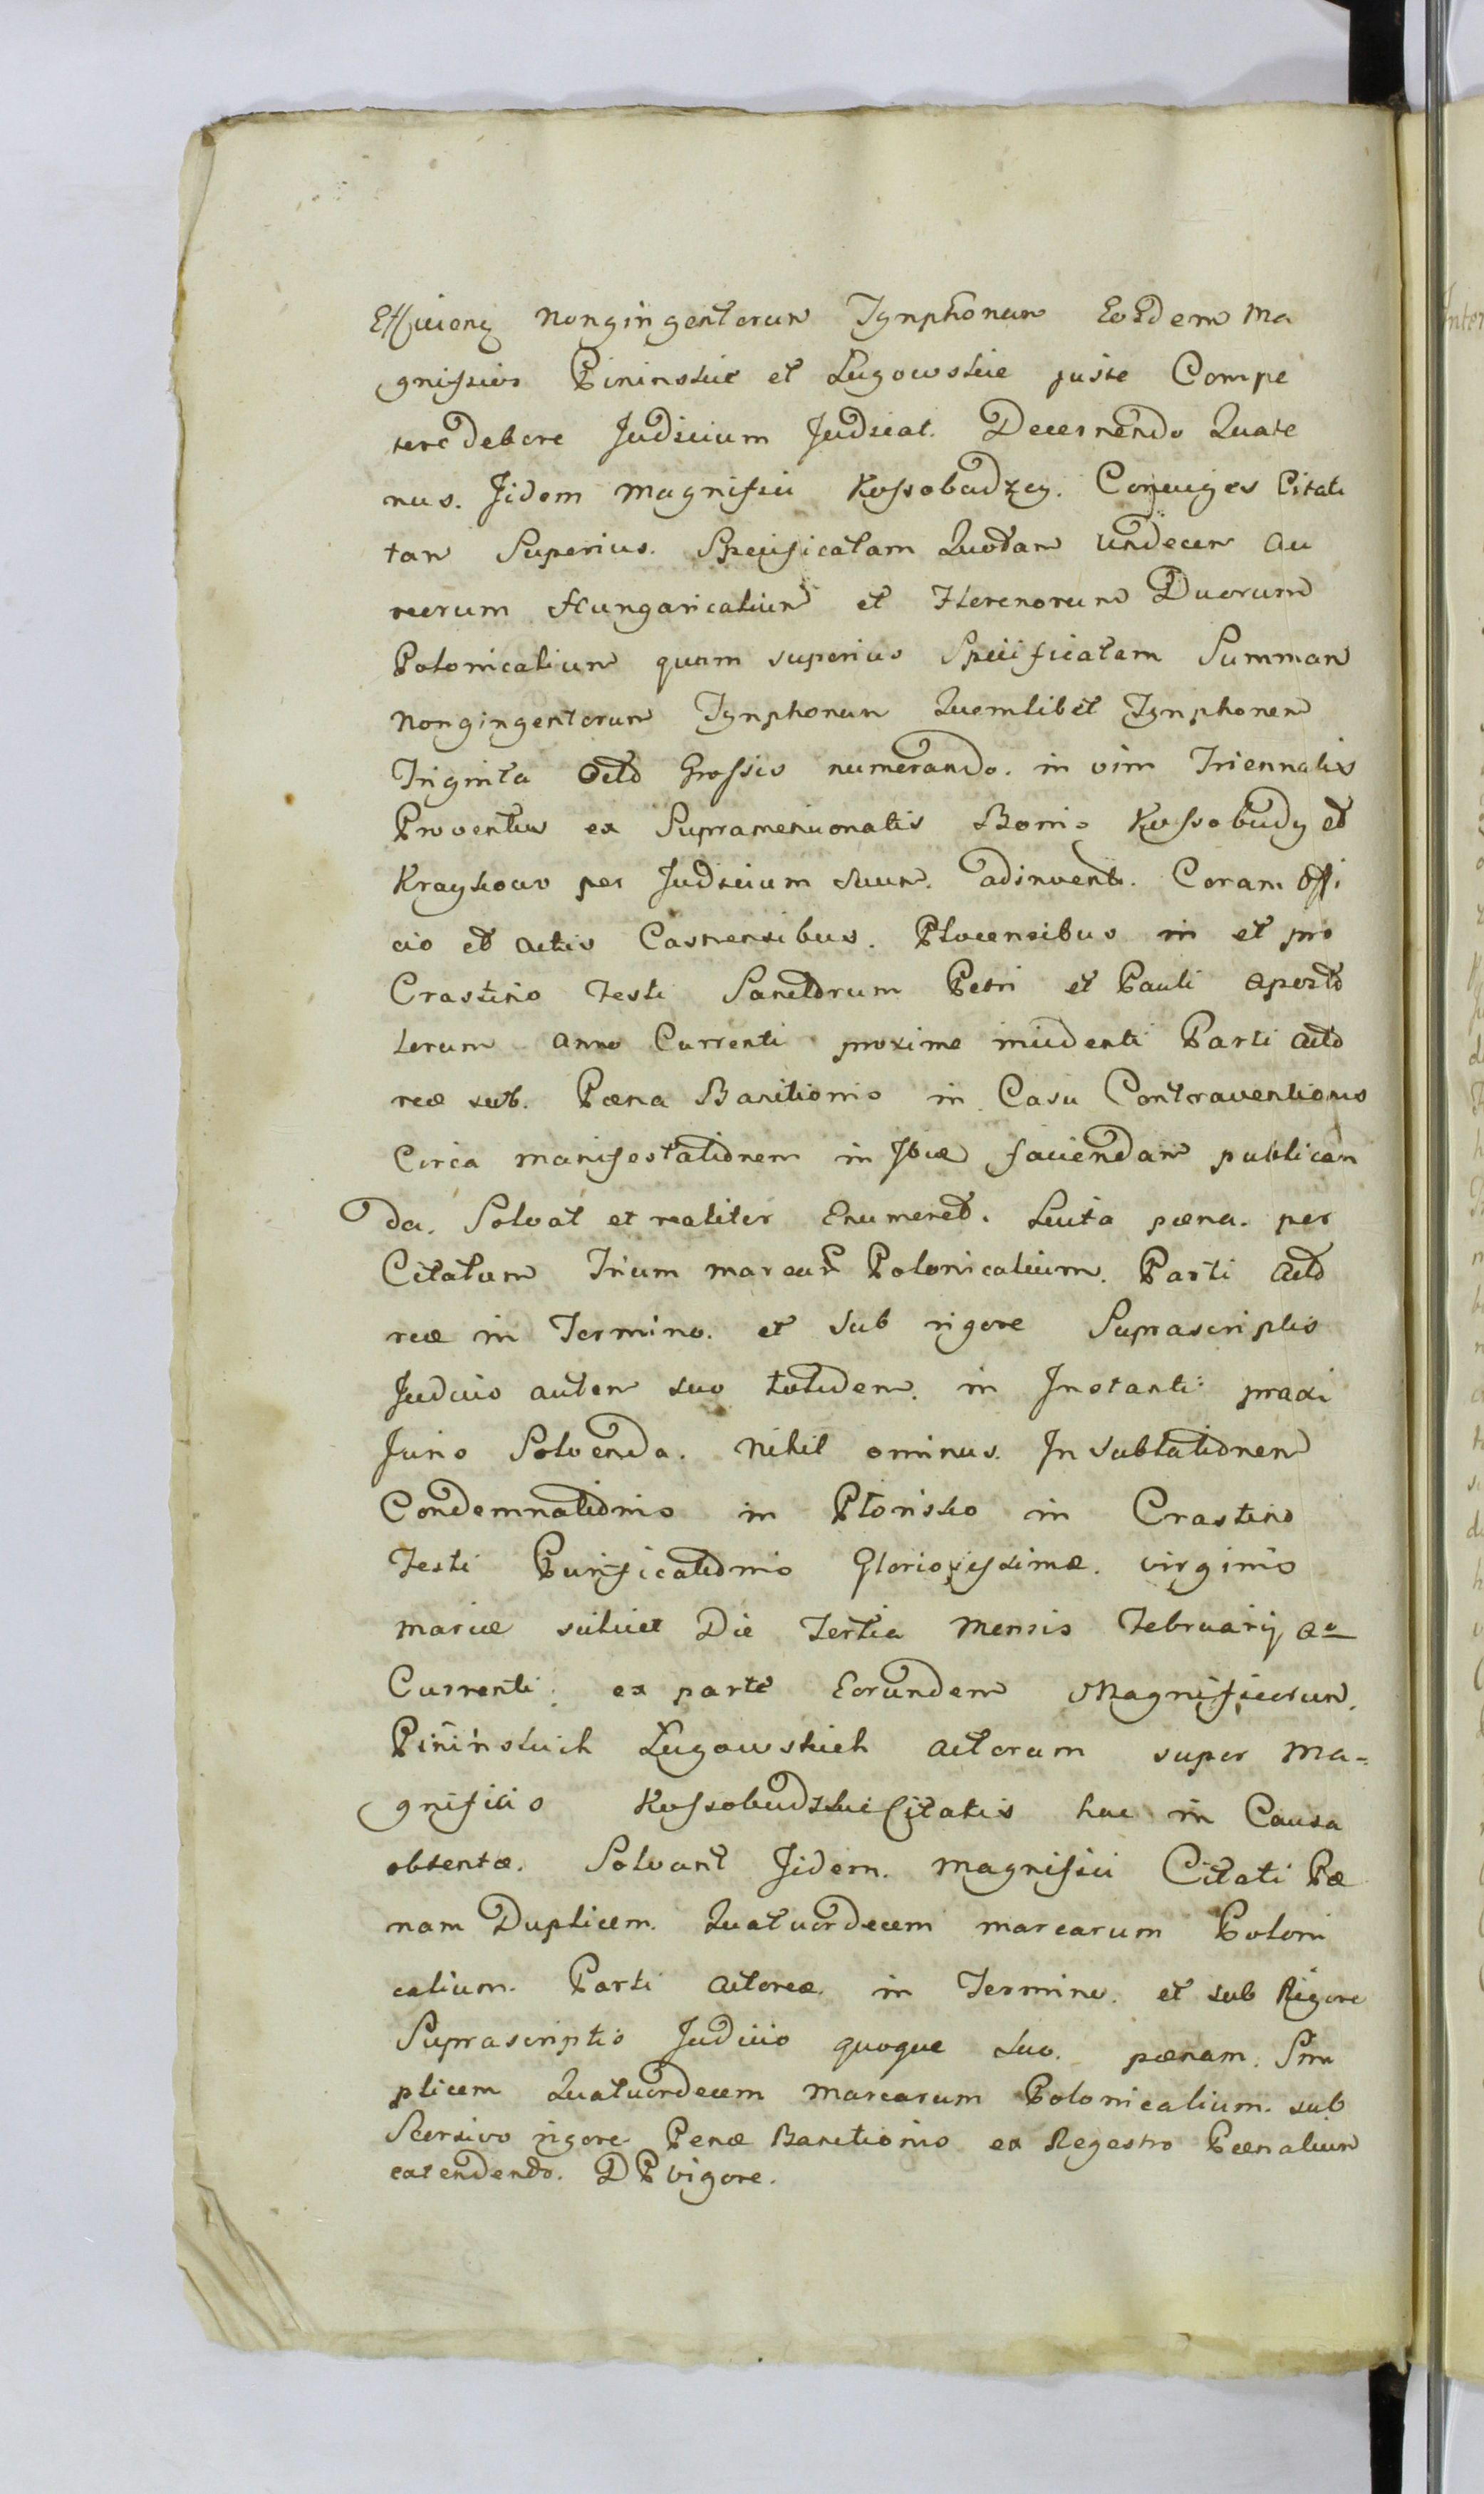 Efficieng Nongingentorum Tynphonum Eosdem Ma
gnificos Pininskie et Lugowskie juste Compe
tere debere Judicium Judicat. Decernendo Quate
nus. Jidem Magnifici Kossobudzcy. Conjuges Citati
tam Superius. Specificatam Quotam Undecem Au
reorum Hungaricalium et Florenorum Duorum
Polonicalium quam superius Specificatam Summam
Nongingentorum Tynphonum Quemlibet Tynphonem
Triginta Octo Grossis numerando. in vim Triennalis
Proventus ex Supramentionatis Bonis Kossobudy et
Kraykowo per Judicium suum. adinvent. Coram Offi
cio et Actis Castrensibus. Plocensibus in et pro
Crastino Festi Sanctorum Petri et Pauli Aposto
lorum Anno Currenti proxime incidenti Parti Acto
reæ sub. Pæna Banitionis in Casu Contraventionis
Circa manifestationem in Jbidæ faciendam publican
da. Solvat et realiter Enumeret. Luita pæna. per
Citatum Trium marcar Polonicalium. Parti Acto
reæ in Termino. et sub rigore Suprascriptis
Judicio autem suo totidem. in Instanti praxi
Juris Solvenda. Nihil ominus. In Sublationem
Condemnationis in Płońsko in Crastino
Festi Purificationis Gloriosissimæ. Virginis
Mariæ scilicet Die Tertia Mensis Februarij Ao
Currenti. ex parte Eorundem Magnificorum.
Pinińskich Lugowskich Actorum super Ma-
gnificis Kossobudzkie Citatis hac in Causa
obtentæ. Solvant Jidem. Magnifici Citati Pæ
nam Duplicem. Quatuordecem marcarum Poloni
calium. Parti Actoreæ. in Termino. et sub Rigore
Suprascriptis Judicio quoque suo. pænam. Sim
plicem Quatuordecem Marcarum Polonicalium. sub
Seorsivo rigore Penæ Banitionis ex Regestro Pænalium
extendendo. D P Vigore.